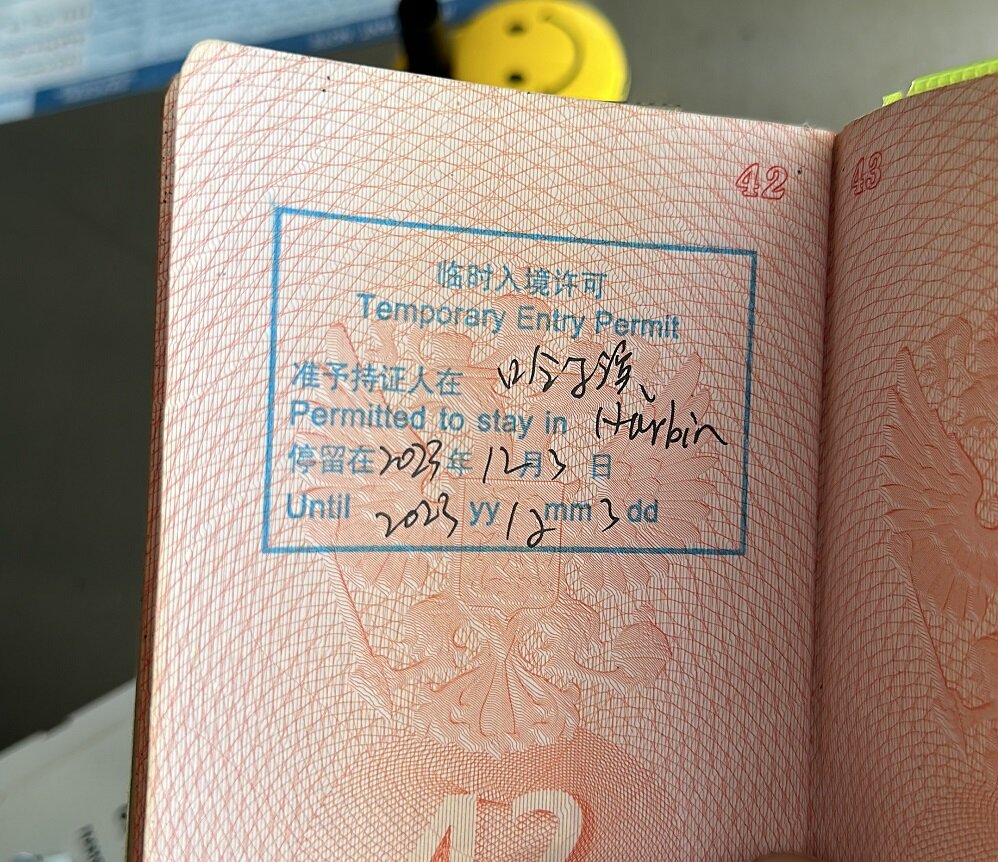 42
43
临时入境许可
Temporary Entry Permit
准予持证人在 哈尔滨、
Permitted to stay in Harbin
停留在2023年 12月3 日
Until 2023 yy 12 mm 3 dd
42